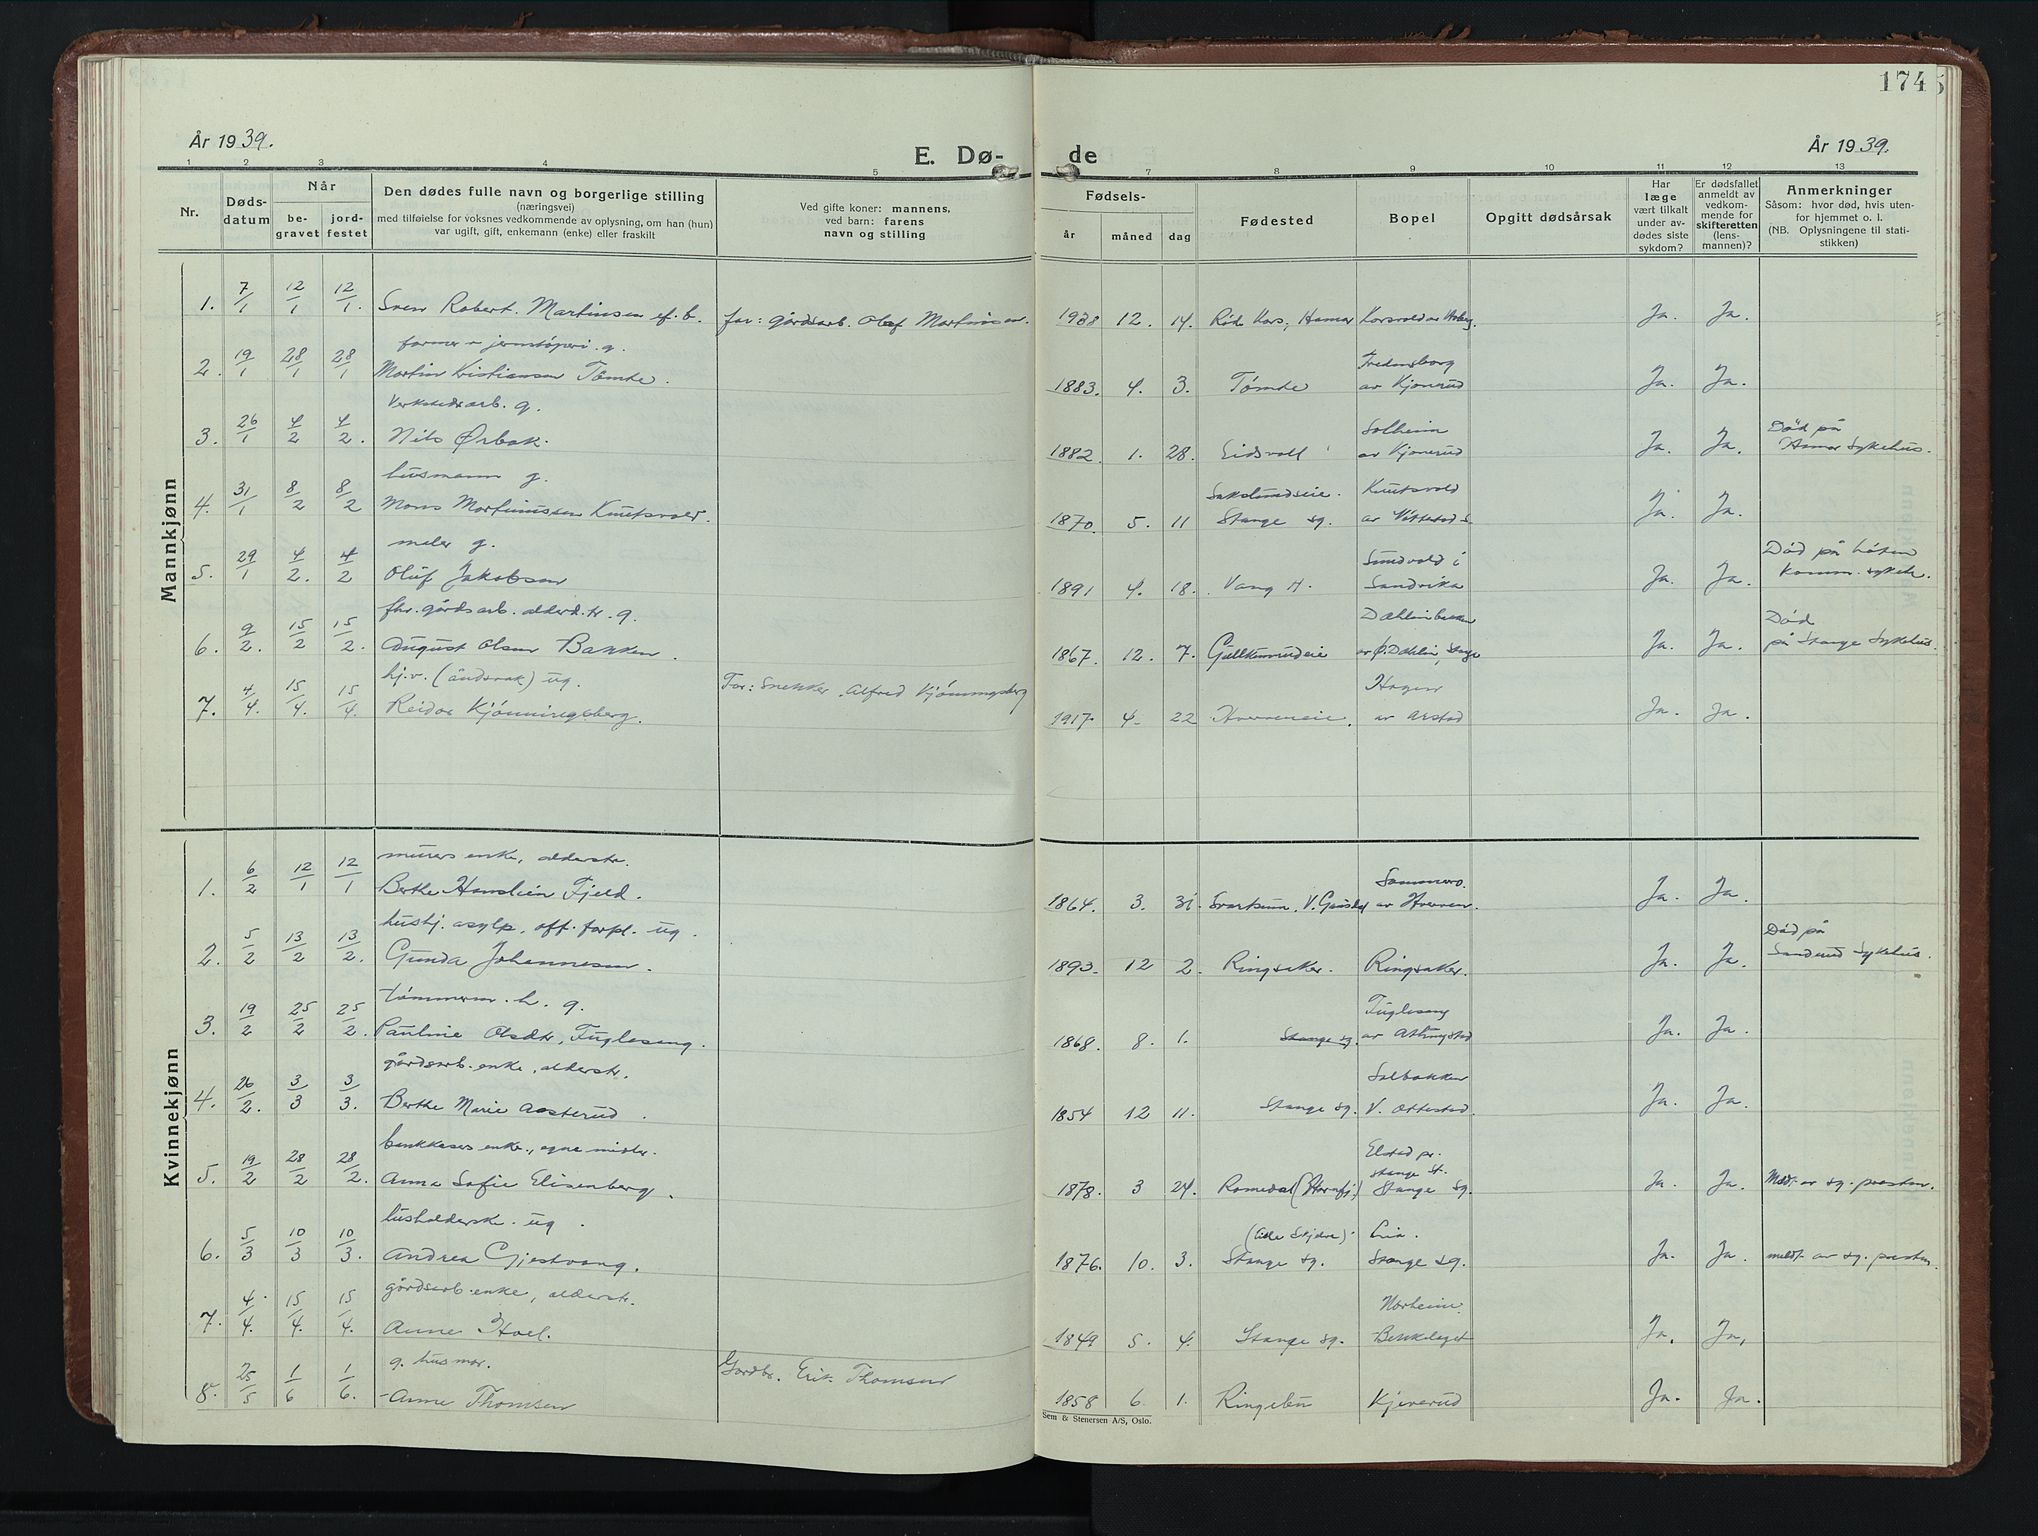 174
År 1939.
E. Dø-
de
År 1939.
1 2 3 4 5 7 8 9 10 11 12 13
Nr.
Døds-
datum
Når
be-
gravet
jord-
festet
Den dødes fulle navn og borgerlige stilling
(næringsvei)
med tilføielse for voksnes vedkommende av oplysning, om han (hun)
var ugift, gift, enkemann (enke) eller fraskilt
Ved gifte koner: mannens,
ved barn: farens
navn og stilling
Fødsels-
år måned dag
Fødested
Bopel
Opgitt dødsårsak
Har
læge
vært tilkalt
under av-
dødes siste
sykdom?
Er dødsfallet
anmeldt av
vedkom-
mende for
skifteretten
(lens-
mannen)?
Anmerkninger
Såsom: hvor død, hvis uten-
for hjemmet o. l.
(NB. Oplysningene til stati-
stikken)
Mannkjønn
1. 7/1 12/1 12/1. Sven Robert. Martinsen ef. b. far: gårdsarb. Olaf Martinsen. 1938 12. 14. Røde Kors, Hamar Ja. Ja.
former v jernstøperi. g. Fredensborg
2. 19/1 28/1 28/1 Martin Kristiansen Tømte. 1883. 4. 3. Tømte av Kjonerud Ja. Ja.
Verkstedsarb. g. Solheim Død på
3. 26/1 4/2 4/2. Nils Ørbak. 1882. 1. 28. Eidsvoll av Kjonerud Ja. Ja. Hamar Sykehus.
husmann g. Knutsvold
4. 31/1 8/2 8/2 Mons Martinussen Knutsvold. 1870. 5. 11 Stange sg. Ja. Ja.
maler g. Sundvold i Død på Løten
5. 29/1 4/2. 4/2 Oluf Jakobsen 1891 4. 18. Vang H. Sandvika Ja. Ja. Komm. sykeh.
fhv. gårdsarb. alderd. tr. g. Død
6. 9/2. 15/2 15/2. August Olsen Bakken. 1867. 12. 7. Ja. Ja. på Stange Sykehus.
hj.v. (åndsvak) ug. Far: Snekker. Alfred Kjønningsberg Hagen
7. 4/4. 15/4. 15/4. Reidar Kjønningsberg. 1917. 4. 22 av Arstad Ja. Ja.
Kvinnekjønn
murers enke, alderstr.
1. 6/2 12/1 12/1 Berthe Fjeld. 1864. 3. 31. av Hverven Ja. Ja.
hushj. asylp. off. forpl. ug. Død på
2. 5/2 13/2 13/2. Gunda Johannesen. 1893. 12 2. Ringsaker. Ringsaker. Ja. Ja. Sanderud Sykehus.
tømmerm. h. g. Fuglesang
3. 19/2 25/2 25/2. Pauline Olsdtr, Fuglesang. 1868. 8. 1. Stange sg. Ja. Ja.
gårdsarb. enke, alderstr. Solbakken
4. 26/2. 3/3 3/3. Berthe Marie Aasterud. 1854 12 11. Stange sg. V. Ottestad. Ja. Ja.
enke., egne midler. Elstad pr. Stange St.
5. 19/2 28/2 28/2. Anna Sofie Elisenberg. 1878. 3 24. Romedal Stange sg. Ja. Ja. Medt. av sg. presten.
husholderske. ug. (lille Skjelve) Lia.
6. 5/3 10/3 10/3. Andrea Gjestvang. 1876. 10. 3. Stange sg. Stange sg. Ja. Ja. meldt. av sg. presten.
gårdsarb. enke, alderstr. Norheim.
7. 4/4. 15/4. 15/4. Anne Hoel. 1849 5. 4. Stange sg. Bekkelaget Ja. Ja.
g. husmor. Gårdbr. Erik Thomsen
8. 25/5 1/6 1/6. Anne Thomsen 1858 6. 1. Ringebu Kjenerud Ja. Ja.
Sem & Stenersen A/S, Oslo.